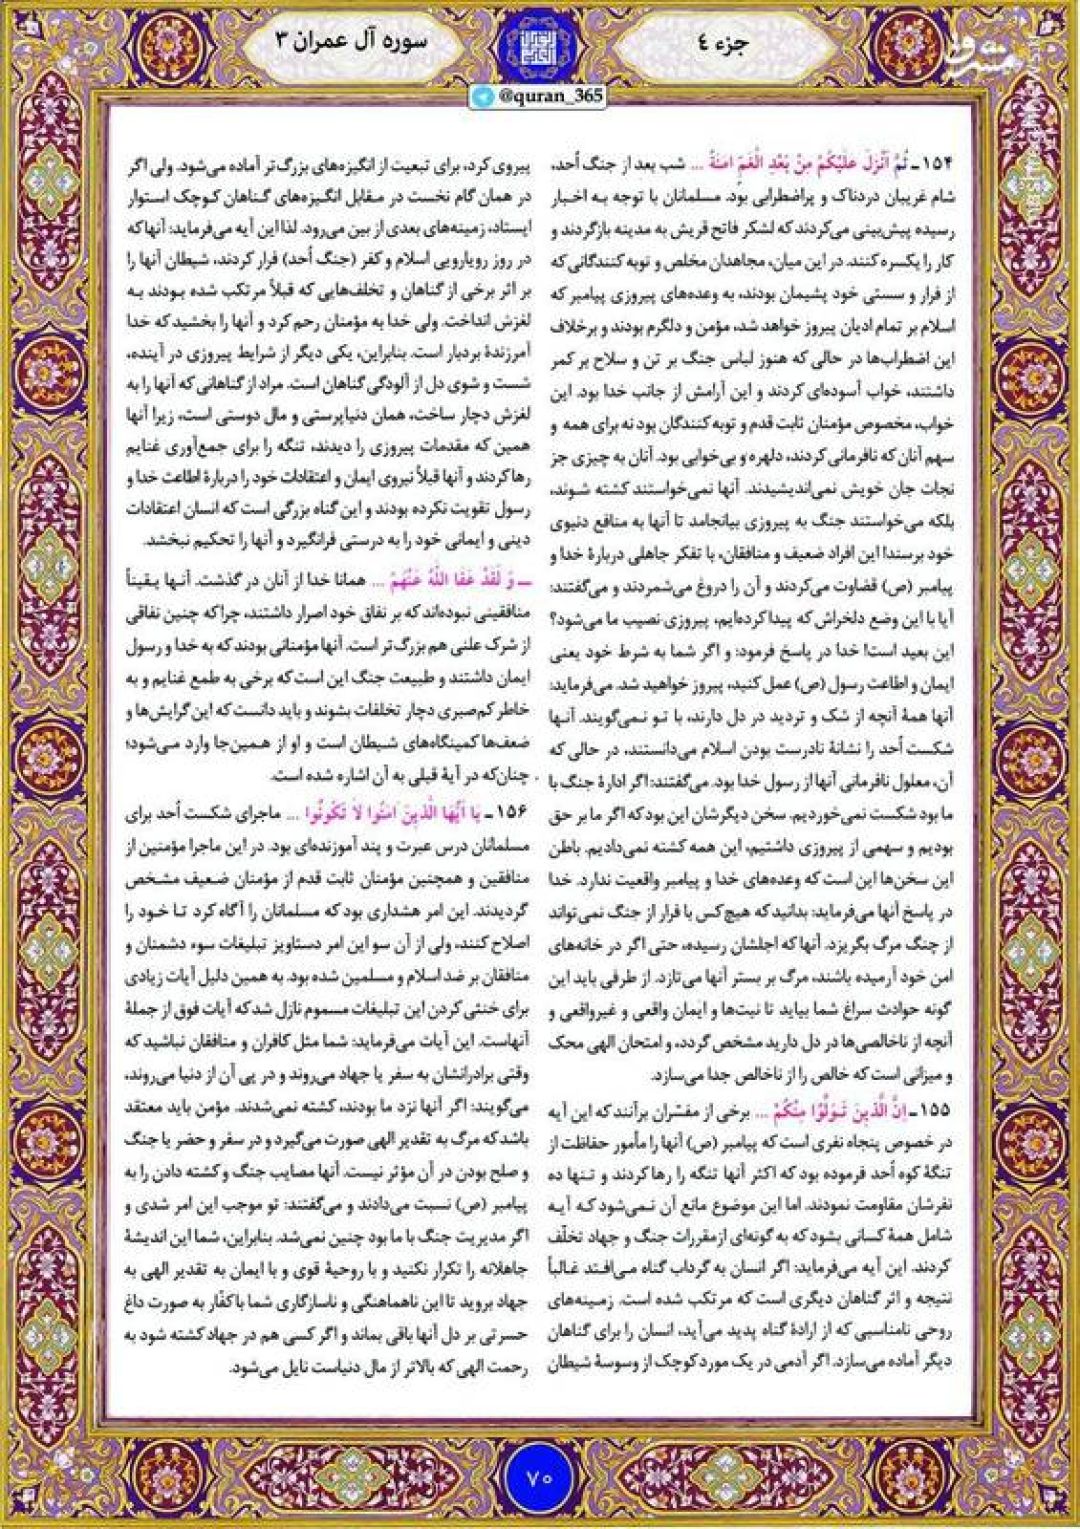 جزء ٤
سوره آل عمران ۳
مشرق
@quran_365
۱۵۴ـ ثُمَّ اَنْزَلَ عَلَيْكُمْ مِنْ بَعْدِ الْغَمِّ اَمَنَةً ... شب بعد از جنگ اُحد،
شام غریبان دردناک و پراضطرابی بود. مسلمانان با توجه به اخبار
رسیده پیش‌بینی می‌کردند که لشکر فاتح قریش به مدینه بازگردند و
کار را یکسره کنند. در این میان، مجاهدان مخلص و توبه کنندگانی که
از فرار و سستی خود پشیمان بودند، به وعده‌های پیروزی پیامبر که
اسلام بر تمام ادیان پیروز خواهد شد، مؤمن و دلگرم بودند و برخلاف
این اضطراب‌ها در حالی که هنوز لباس جنگ بر تن و سلاح بر کمر
داشتند، خواب آسوده‌ای کردند و این آرامش از جانب خدا بود. این
خواب، مخصوص مؤمنان ثابت قدم و توبه‌کنندگان بود نه برای همه و
سهم آنان که نافرمانی کردند، دلهره و بی‌خوابی بود. آنان به چیزی جز
نجات جان خویش نمی‌اندیشیدند. آنها نمی‌خواستند کشته شوند،
بلکه می‌خواستند جنگ به پیروزی بیانجامد تا آنها به منافع دنیوی
خود برسند! این افراد ضعیف و منافقان، با تفکر جاهلی دربارهٔ خدا و
پیامبر (ص) قضاوت می‌کردند و آن را دروغ می‌شمردند و می‌گفتند:
آیا با این وضع دلخراش که پیدا کرده‌ایم، پیروزی نصیب ما می‌شود؟
این بعید است! خدا در پاسخ فرمود: و اگر شما به شرط خود یعنی
ایمان و اطاعت رسول (ص) عمل کنید، پیروز خواهید شد. می‌فرماید:
آنها همهٔ آنچه از شک و تردید در دل دارند، با تو نمی‌گویند. آنها
شکست اُحد را نشانهٔ نادرست بودن اسلام می‌دانستند، در حالی که
آن، معلول نافرمانی آنها از رسول خدا بود. می‌گفتند: اگر ادارهٔ جنگ با
ما بود شکست نمی‌خوردیم. سخن دیگرشان این بود که اگر ما بر حق
بودیم و سهمی از پیروزی داشتیم، این همه کشته نمی‌دادیم. باطن
این سخن‌ها این است که وعده‌های خدا و پیامبر واقعیت ندارد. خدا
در پاسخ آنها می‌فرماید: بدانید که هیچ‌کس با فرار از جنگ نمی‌تواند
از چنگ مرگ بگریزد. آنها که اجلشان رسیده، حتی اگر در خانه‌های
امن خود آرمیده باشند، مرگ بر بستر آنها می‌تازد. از طرفی باید این
گونه حوادث سراغ شما بیاید تا نیت‌ها و ایمان واقعی و غیرواقعی و
آنچه از ناخالصی‌ها در دل دارید مشخص گردد، و امتحان الهی محک
و میزانی است که خالص را از ناخالص جدا می‌سازد.
۱۵۵ـ اِنَّ الَّذِينَ تَوَلَّوْا مِنْكُمْ ... برخی از مفسّران برآنند که این آیه
در خصوص پنجاه نفری است که پیامبر (ص) آنها را مأمور حفاظت از
تنگهٔ کوه اُحد فرموده بود که اکثر آنها تنگه را رها کردند و تنها ده
نفرشان مقاومت نمودند. اما این موضوع مانع آن نمی‌شود که آیه
شامل همهٔ کسانی بشود که به گونه‌ای از مقررات جنگ و جهاد تخلّف
کردند. این آیه می‌فرماید: اگر انسان به گرداب گناه می‌افتد غالباً
نتیجه و اثر گناهان دیگری است که مرتکب شده است. زمینه‌های
روحی نامناسبی که از ارادهٔ گناه پدید می‌آید، انسان را برای گناهان
دیگر آماده می‌سازد. اگر آدمی در یک مورد کوچک از وسوسهٔ شیطان
پیروی کرد، برای تبعیت از انگیزه‌های بزرگ‌تر آماده می‌شود. ولی اگر
در همان گام نخست در مقابل انگیزه‌های گناهان کوچک استوار
ایستاد، زمینه‌های بعدی از بین می‌رود. لذا این آیه می‌فرماید: آنها که
در روز رویارویی اسلام و کفر (جنگ اُحد) فرار کردند، شیطان آنها را
بر اثر برخی از گناهان و تخلف‌هایی که قبلاً مرتکب شده بودند به
لغزش انداخت. ولی خدا به مؤمنان رحم کرد و آنها را بخشید که خدا
آمرزندهٔ بردبار است. بنابراین، یکی دیگر از شرایط پیروزی در آینده،
شست و شوی دل از آلودگی گناهان است. مراد از گناهانی که آنها را به
لغزش دچار ساخت، همان دنیاپرستی و مال دوستی است، زیرا آنها
همین که مقدمات پیروزی را دیدند، تنگه را برای جمع‌آوری غنایم
رها کردند و آنها قبلاً نیروی ایمان و اعتقادات خود را دربارهٔ اطاعت خدا و
رسول تقویت نکرده بودند و این گناه بزرگی است که انسان اعتقادات
دینی و ایمانی خود را به درستی فرانگیرد و آنها را تحکیم نبخشد.
ـ وَ لَقَدْ عَفَا اللّٰهُ عَنْهُمْ ... همانا خدا از آنان در گذشت. آنها یقیناً
منافقینی نبوده‌اند که بر نفاق خود اصرار داشتند، چرا که چنین نفاقی
از شرک علنی هم بزرگ‌تر است. آنها مؤمنانی بودند که به خدا و رسول
ایمان داشتند و طبیعت جنگ این است که برخی به طمع غنایم و به
خاطر کم‌صبری دچار تخلفات بشوند و باید دانست که این گرایش‌ها و
ضعف‌ها کمینگاه‌های شیطان است و او از همین‌جا وارد می‌شود؛
چنان‌که در آیهٔ قبلی به آن اشاره شده است.
۱۵۶ـ يَا اَيُّهَا الَّذِينَ اٰمَنُوا لاَ تَكُونُوا ... ماجرای شکست اُحد برای
مسلمانان درس عبرت و پند آموزنده‌ای بود. در این ماجرا مؤمنین از
منافقین و همچنین مؤمنان ثابت قدم از مؤمنان ضعیف مشخص
گردیدند. این امر هشداری بود که مسلمانان را آگاه کرد تا خود را
اصلاح کنند، ولی از آن سو این امر دستاویز تبلیغات سوء دشمنان و
منافقان بر ضد اسلام و مسلمین شده بود. به همین دلیل آیات زیادی
برای خنثی کردن این تبلیغات مسموم نازل شد که آیات فوق از جملهٔ
آنهاست. این آیات می‌فرماید: شما مثل کافران و منافقان نباشید که
وقتی برادرانشان به سفر یا جهاد می‌روند و در پی آن از دنیا می‌روند،
می‌گویند: اگر آنها نزد ما بودند، کشته نمی‌شدند. مؤمن باید معتقد
باشد که مرگ به تقدیر الهی صورت می‌گیرد و در سفر و حضر یا جنگ
و صلح بودن در آن مؤثر نیست. آنها مصایب جنگ و کشته دادن را به
پیامبر (ص) نسبت می‌دادند و می‌گفتند: تو موجب این امر شدی و
اگر مدیریت جنگ با ما بود چنین نمی‌شد. بنابراین، شما این اندیشهٔ
جاهلانه را تکرار نکنید و با روحیهٔ قوی و با ایمان به تقدیر الهی به
جهاد بروید تا این ناهماهنگی و ناسازگاری شما با کفّار به صورت داغ
حسرتی بر دل آنها باقی بماند و اگر کسی هم در جهاد کشته شود به
رحمت الهی که بالاتر از مال دنیاست نایل می‌شود.
۷۰